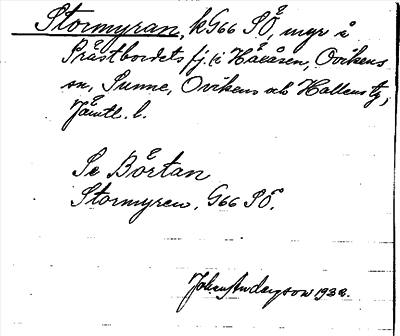 Stormyran, k G66 SÖ, myr i
Prästbordets fj. (i Hååsen, Ovikens
sn, Sunne, Ovikens och Hallens tg,
Jämtl. l.
Se Börtan
Stormyren. G66 SÖ.
John Anderson 1932.